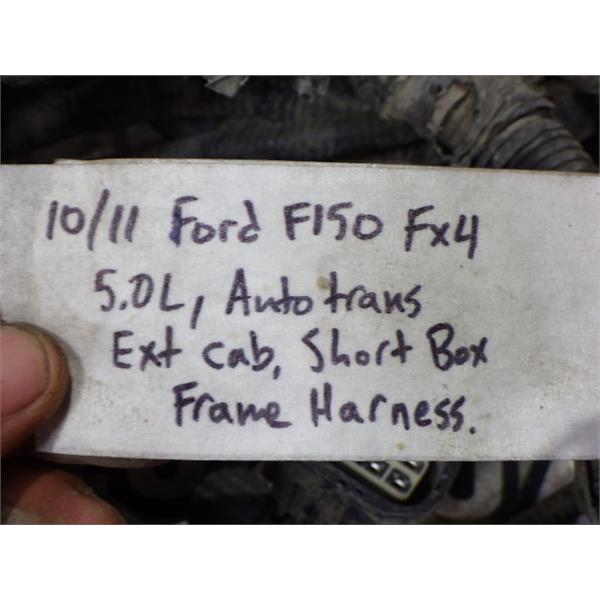 10/11 Ford F150 Fx4
5.0L, Auto trans
Ext cab, Short Box
Frame Harness.